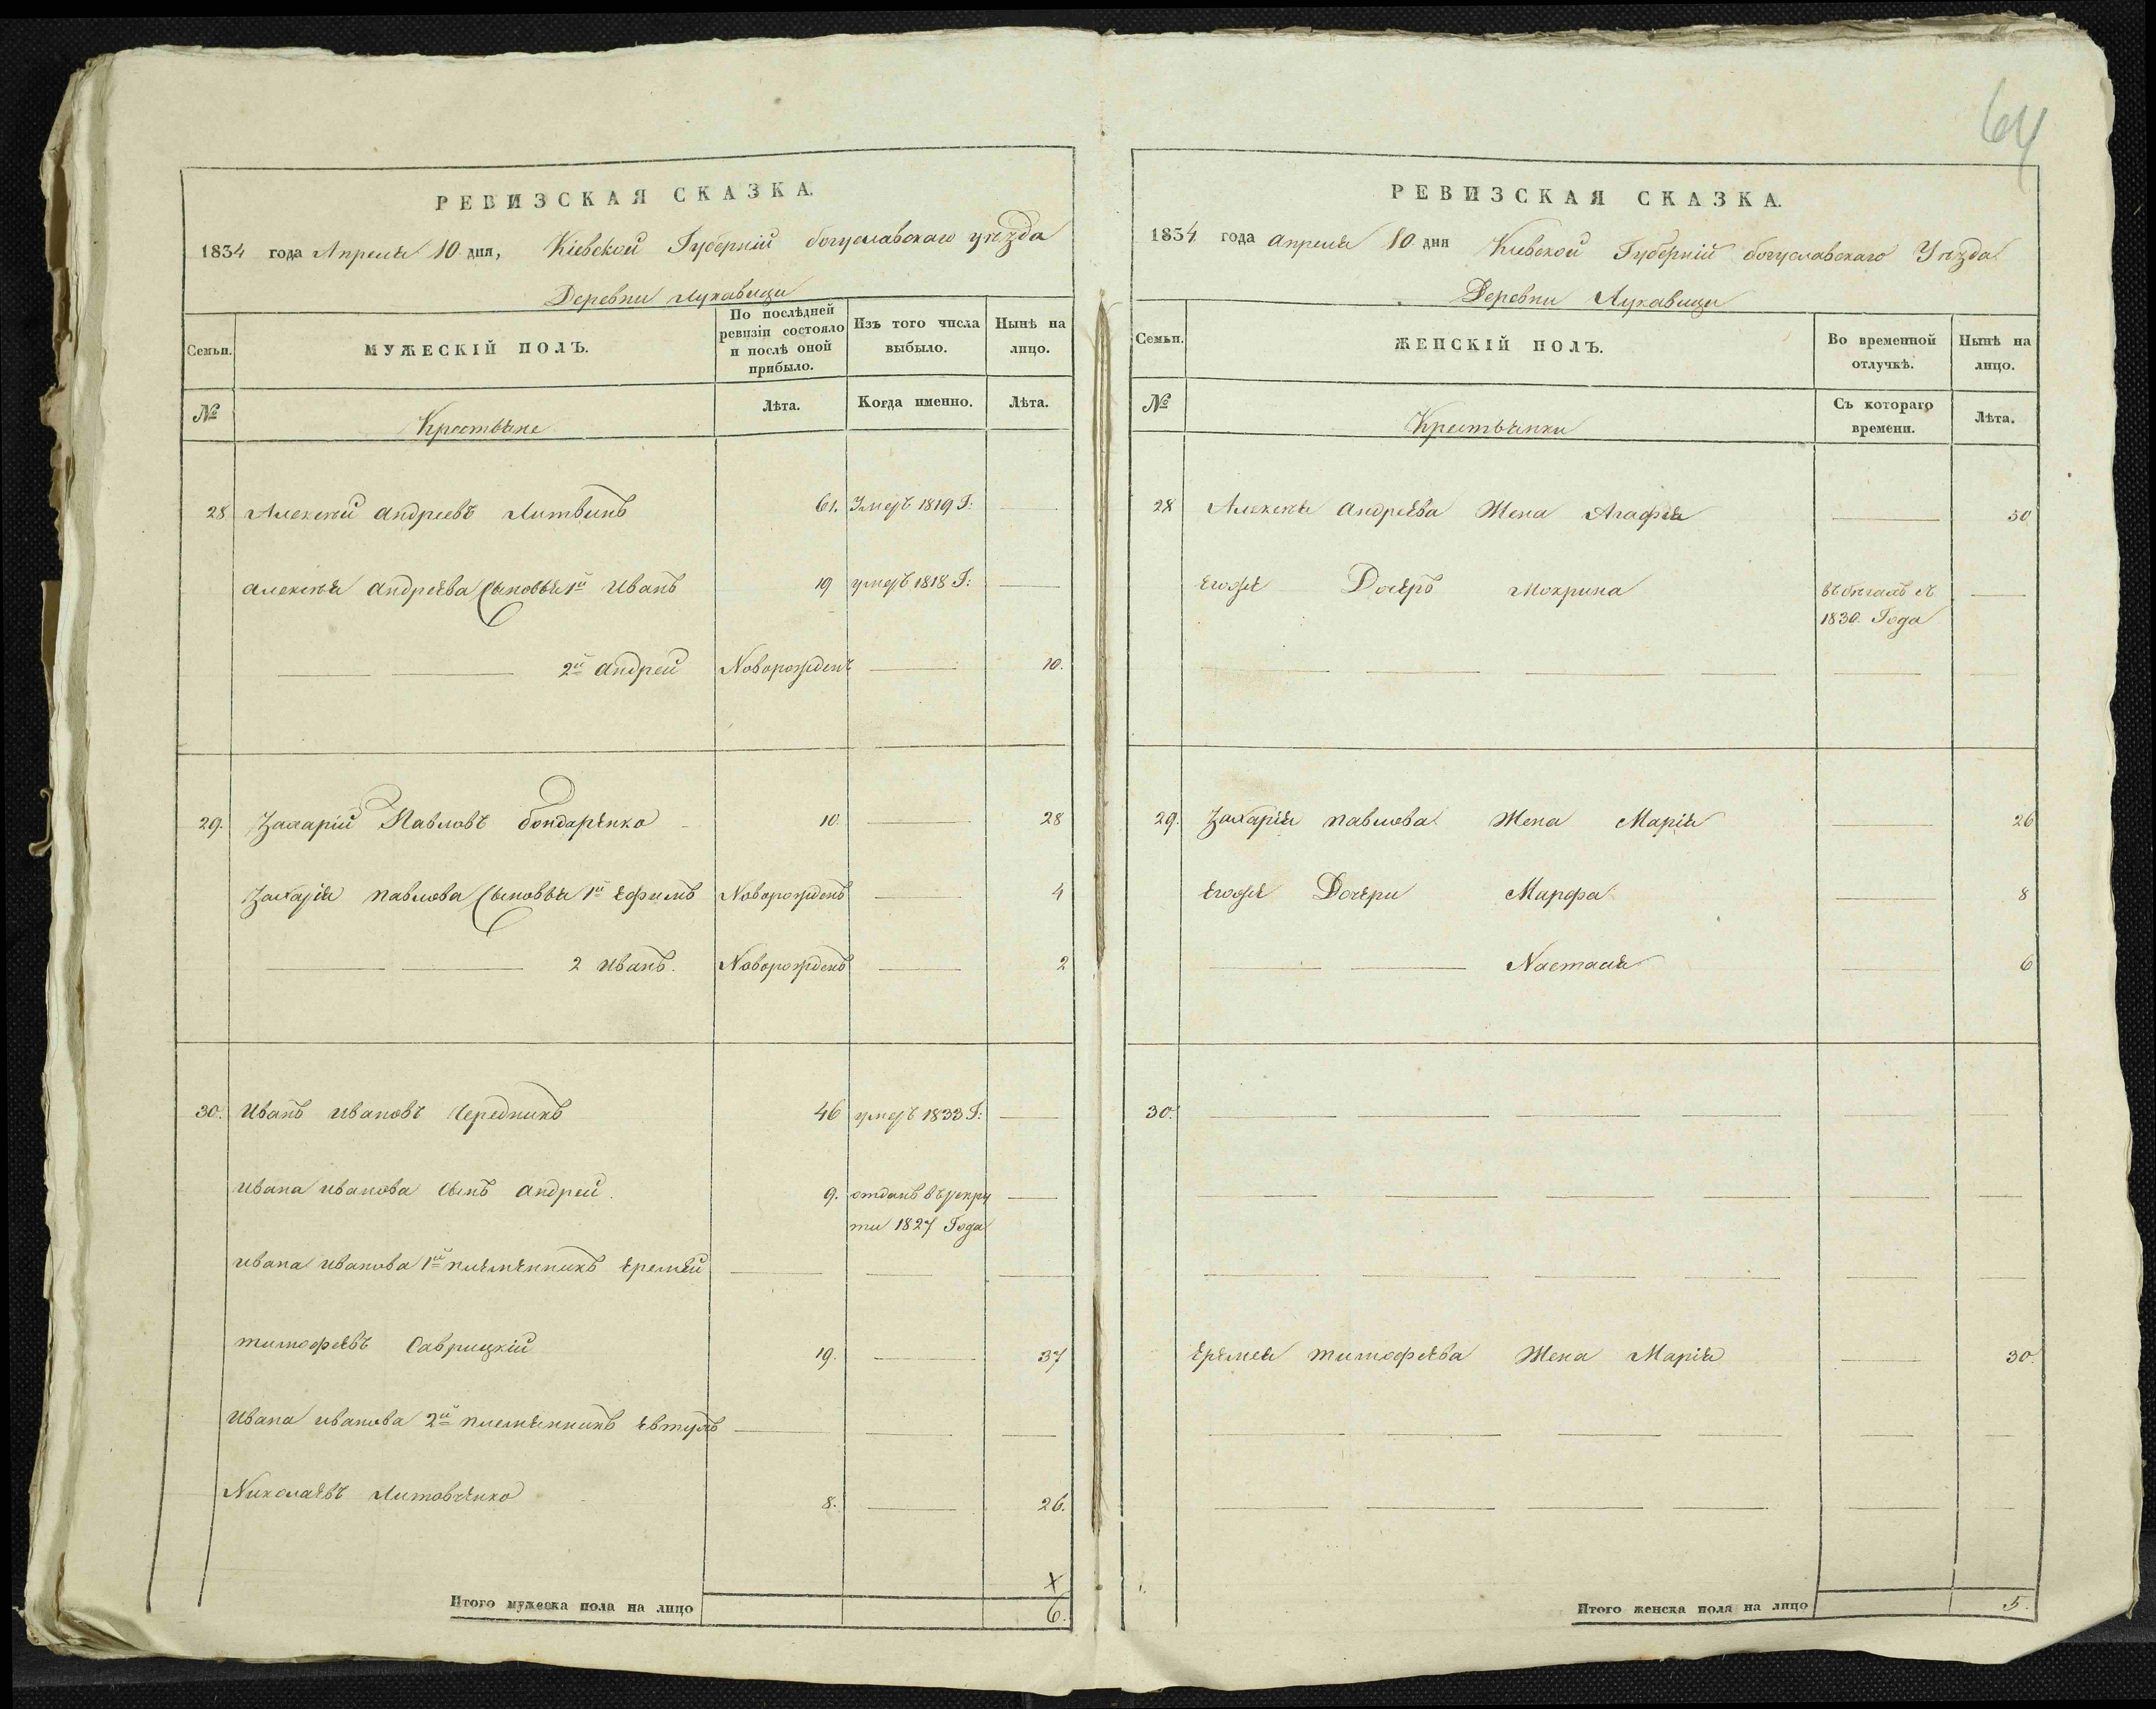 64
РЕВИЗСКАЯ СКАЗКА.
1834 года Апреля 10 дня, Кіевской Губерніи богуславскаго уѣзда
Деревни Лукавици
Семьи.
МУЖЕСКІЙ ПОЛЪ.
По послѣдней ревизіи состояло и послѣ оной прибыло.
Изъ того числа выбыло.
Нынѣ на лицо.
№
Крестьяне
Лѣта.
Когда именно.
Лѣта.
28 Алексѣй андреевъ Литвинъ 61. Умеръ 1819 Г:
алексѣя андреева Сыновья 1й Иванъ 19 умеръ 1818 Г:
2й андрей Новорожденъ 10.
29. Захарій Павловъ бондаренко 10. 28
Захарія павлова Сыновья 1й ефимъ Новорожденъ 4
2 иванъ. Новорожденъ 2
30. Иванъ ивановъ Чередникъ 46 умеръ 1833 Г:
ивана иванова Сынъ андрей. 9. отданъ въ рекру
ти 1827 Года
ивана иванова 1й племенникъ еремѣй
тимофеевъ Саврицкій 19. 37
ивана иванова 2й племенникъ евтухъ
Николаевъ Литовченко 8. 26.
х
Итого мужеска пола на лицо 6.
РЕВИЗСКАЯ СКАЗКА.
1834 года апреля 10 дня Киевской Губерніи богуславскаго Уѣзда
Деревни Лукавици
Семьи.
ЖЕНСКІЙ ПОЛЪ.
Во временной отлучкѣ.
Нынѣ на лицо.
№
Крестьянки
Съ котораго времени.
Лѣта.
28 Алексѣя андреева Жена Агафія 50
егоже Дочеръ Мокрина въ бѣгахъ съ
1830. Года
29. Захарія павлова Жена Марія 26
егоже Дочери Марфа 8
Настася 6
30.
еремея тимофеева Жена Марія 30.
Итого женска пола на лицо 5.